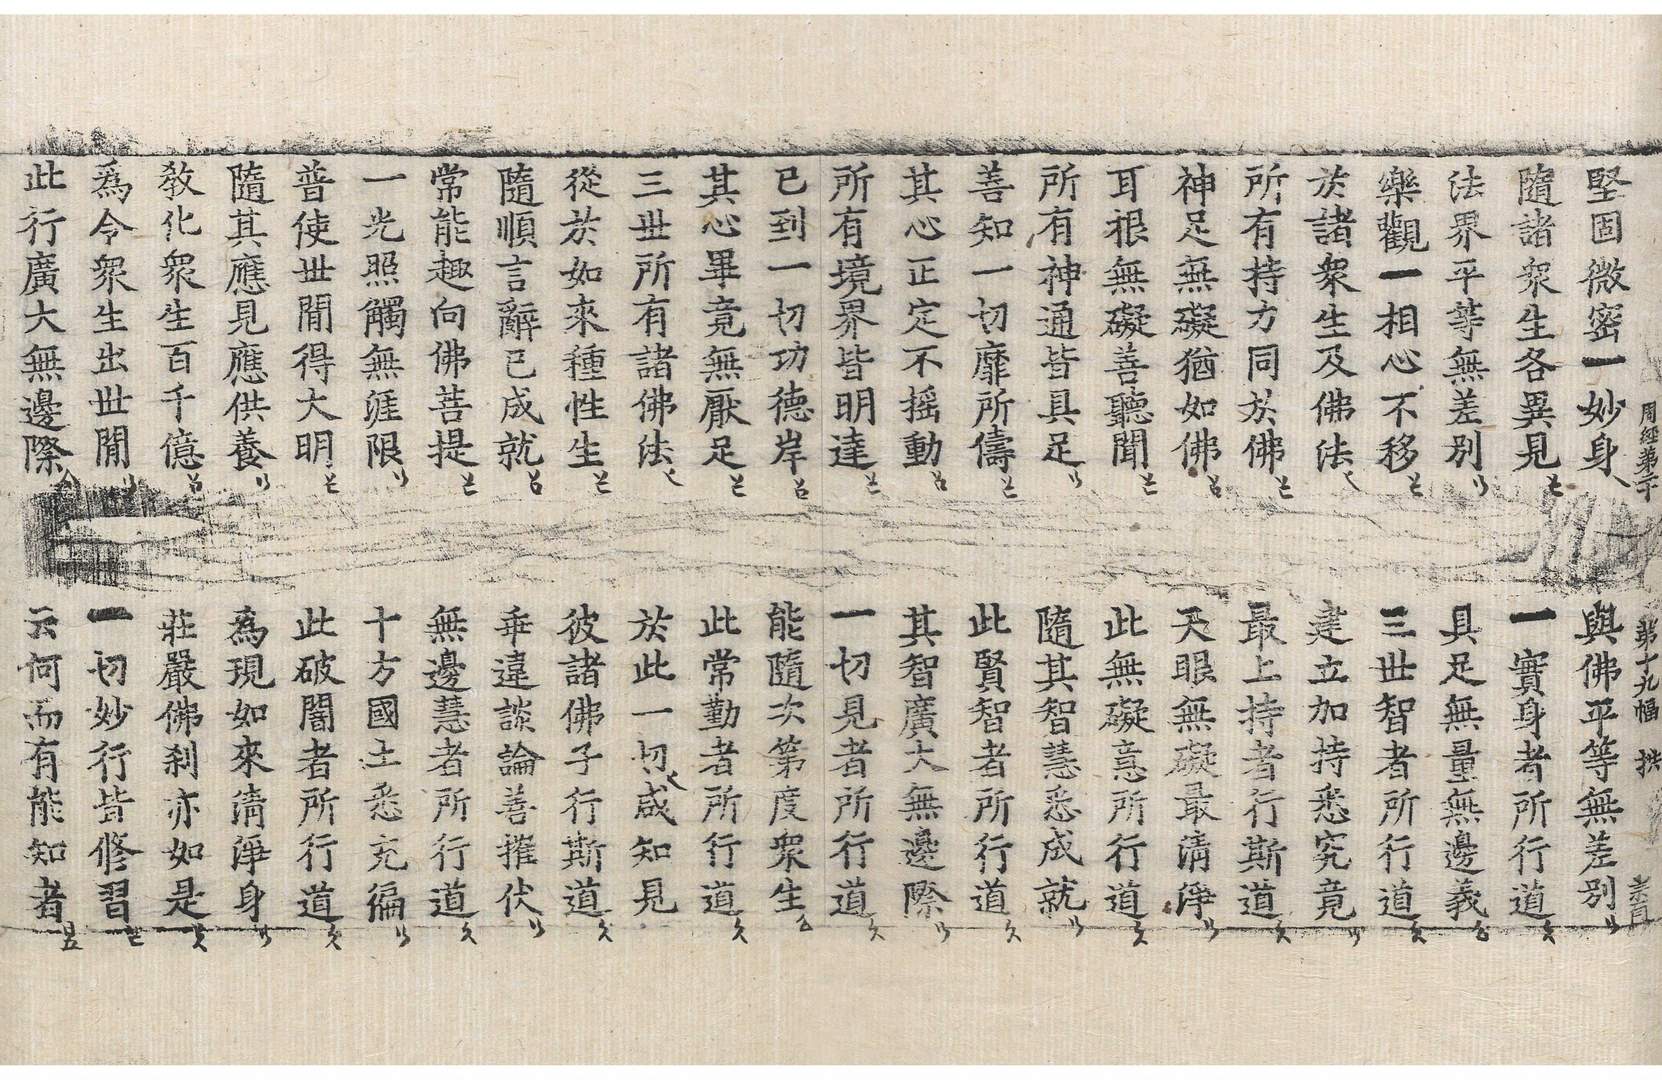 周經第二十 第十九幅 拱
堅固微密一妙身 與佛平等無差別
隨諸衆生各異見 一實身者所行道
法界平等無差別 具足無量無邊義
樂觀一相心不移 三世智者所行道
於諸衆生及佛法 建立加持悉究竟
所有持力同於佛 最上持者行斯道
神足無礙猶如佛 天眼無礙最清淨
耳根無礙善聽聞 此無礙意所行道
所有神通皆具足 隨其智慧悉成就
善知一切靡所儔 此賢智者所行道
其心正定不揺動 其智廣大無邊際
所有境界皆明達 一切見者所行道
已到一切功德岸 能隨次第度衆生
其心畢竟無厭足 此常勤者所行道
三世所有諸佛法 於此一切咸知見
從於如來種性生 彼諸佛子行斯道
隨順言辭已成就 乖違談論善摧伏
常能趣向佛菩提 無邊慧者所行道
一光照觸無涯限 十方國土悉充徧
普使世間得大明 此破闇者所行道
隨其應見應供養 爲現如來清淨身
教化衆生百千億 莊嚴佛刹亦如是
爲令衆生出世間 一切妙行皆修習
此行廣大無邊際 云何而有能知者